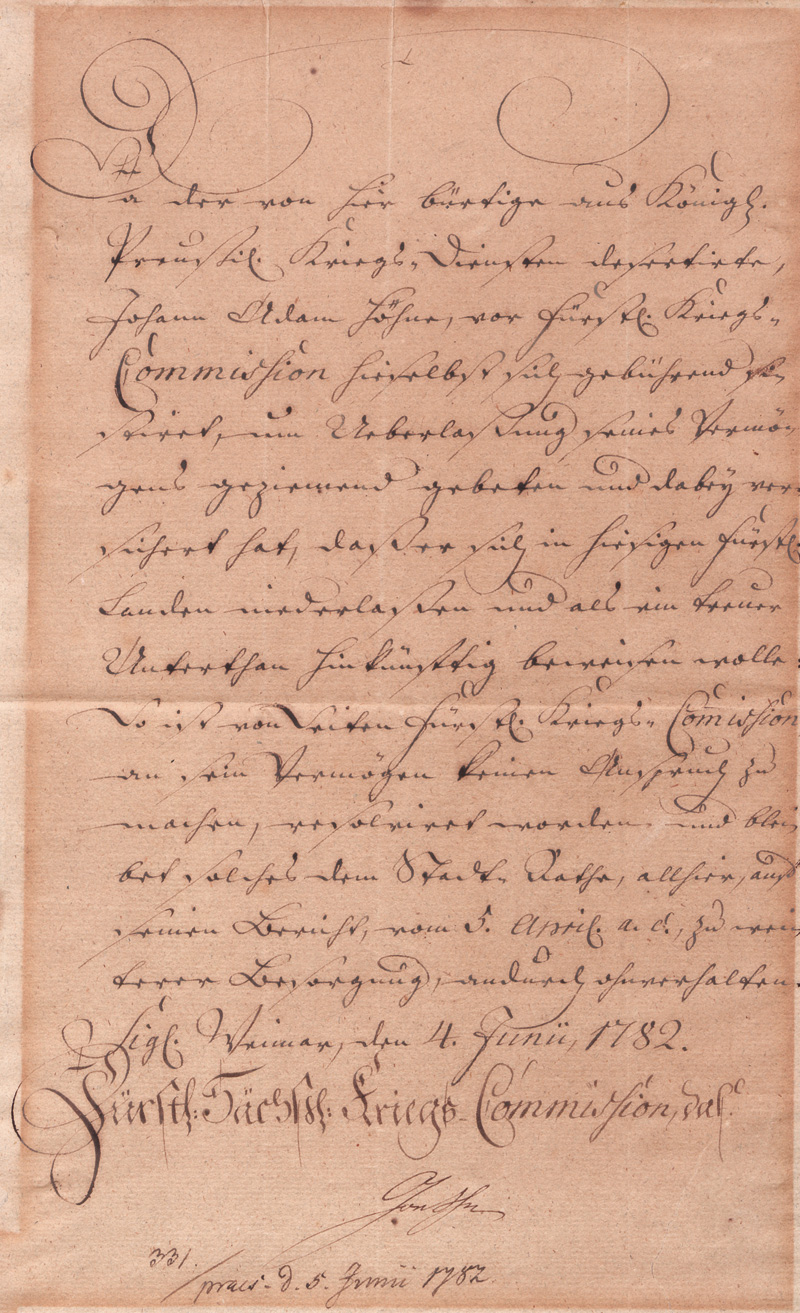 Da der von hier bürtige aus Königl.
Preußil. Kriegs-Diensten desertirte,
Johann Adam Höhne, vor Fürstl. Kriegs-
Commission hieselbst sich gebührend si-
stiret, um Ueberlaßung seines Vermö-
gens geziemend gebeten und dabey ver-
sichert hat, daß er sich in hiesigen Fürstl.
Landen niederlaßen und als ein treuer
Unterthan hinkünfftig beweisen wolle:
So ist von Seiten Fürstl. Kriegs-Comission
an sein Vermögen keinen Anspruch zu
machen, resolviret worden und blei-
bet solches dem Stadt-Rathe, allhier, auf
seinen Bericht, vom 5. April. a. c., zu wei-
terer Besorgung, andurch ohnverhalten.
Sigl. Weimar, den 4. Junii, 1782.
Fürstl: Sächßl: Kriegs-Commission, das.
331.
praes. d. 5. Junii 1782